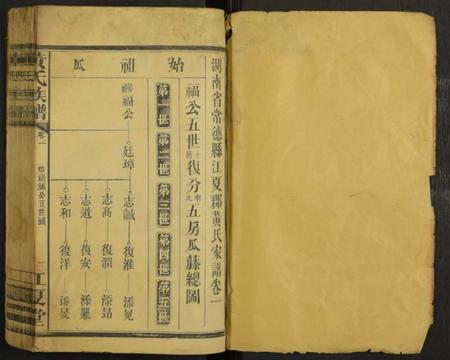 湖南省常德縣江夏郡黃氏家譜卷一
福公五世十前復分南北五房瓜藤總圖
始祖瓜
第一世 第二世 第三世 第四世 第五世
福公 廷璋
志誠 復淮 添晃
志高 復潤 添昂
志道 復安 添
志和 復洋 添
黃氏族譜 卷一 始祖福公五世圖 江夏堂